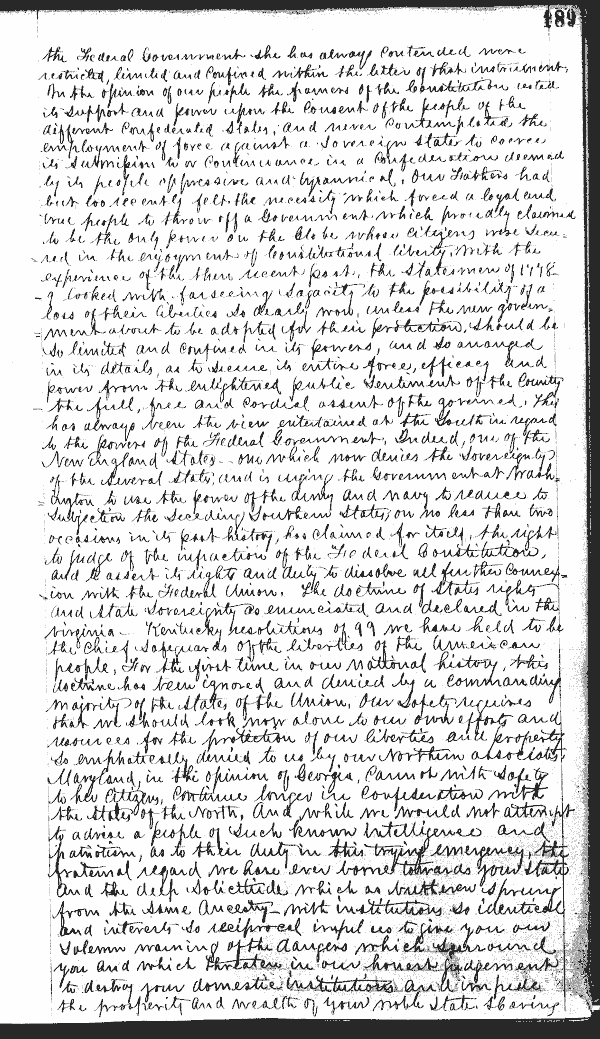 489
the Federal Government she has always contended were
restricted, limited and confined within the letter of that instrument.
In the opinion of our people the framers of the Constitution rested
its support and power upon the consent of the people of the
different Confederated States, and never contemplated the
employment of force against a Sovereign State to coerce
its submission to or continuance in a Confederation deemed
by its people oppressive and tyrannical. Our Fathers had
but too recently felt the necessity which forced a loyal and
true people to throw off a Government which proudly claimed
to be the only power on the Globe whose citizens were secu-
red in the enjoyment of Constitutional liberty. With the
experience of the then recent past, the Statesmen of 1778-
9 looked with farseeing Sagacity to the possibility of a
loss of their liberties so dearly won, unless the new govern-
ment about to be adopted for their protection, should be
so limited and confined in its powers, and so arranged
in its details, as to secure its entire force, efficacy and
power from the enlightened public Sentiment of the Country
the full, free and cordial assent of the governed. This
has always been the view entertained at the South in regard
to the powers of the Federal Government. Indeed, one of the
New England States - one which now denies the Sovereignty
of the several States, and is urging the Government at Wash-
ington to use the power of the army and navy to reduce to
subjection the seceding Southern States, on no less than two
occasions in its past history, has claimed for itself, the right
to judge of the infraction of the Federal Constitution,
and to assert its rights and duty to dissolve all further Connex-
ion with the Federal Union. The doctrine of States rights
and State Sovereignty as enunciated and declared in the
Virginia - Kentucky resolutions of 99 we have held to be
the chief safeguards of the liberties of the American
people. For the first time in our national history, this
doctrine has been ignored and denied by a commanding
majority of the States of the Union. Our safety requires
that we should look now alone to our own efforts and
resources for the protection of our liberties and property
so emphatically denied to us by our Northern associates.
Maryland, in the opinion of Georgia, cannot with Safety
to her Citizens, Continue longer in Confederation with
the States of the North. And, while we would not attempt
to advise a people of such known intelligence and
patriotism, as to their duty in this trying emergency, the
fraternal regard we have ever borne towards your State
and the deep solicitude which as brethren sprung
from the same Ancestry - with institutions so identical
and interests so reciprocal impel us to give you our
solemn warning of the dangers which surround
you and which threaten in our honest judgement
to destroy your domestic institutions and impede
the prosperity and wealth of your noble State. Having